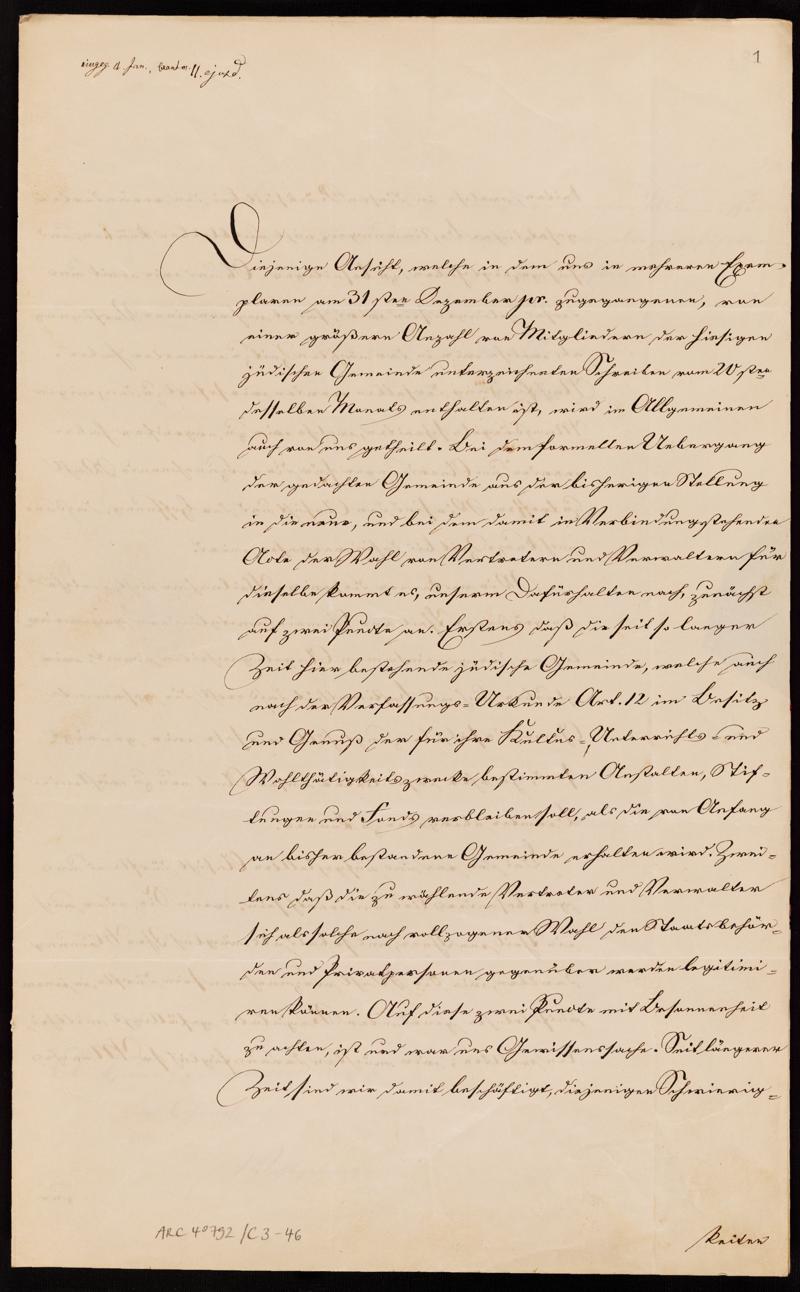 1
eingeg. d. Jan., beantw. 11. ejusd.
Diejenige Ansicht, welche in dem uns in mehreren Exem-
plaren am 31sten Dezember pr. zugegangenen, von
einer größern Anzahl von Mitgliedern der hiesigen
jüdischen Gemeinde unterzeichneten Schreiben vom 20sten
desselben Monats enthalten ist, wird im Allgemeinen
auch von uns getheilt. Bei dem formellen Uebergang
der gedachten Gemeinde aus der bisherigen Stellung
in die neue, und bei dem damit in Verbindung stehenden
Acte der Wahl von Vertretern und Verwaltern für
dieselbe kommt es, unserm Dafürhalten nach, zunächst
auf zwei Puncte an. Erstens daß die seit so langer
Zeit hier bestehende jüdische Gemeinde, welche auch
nach der Verfassungs-Urkunde Art. 12 im Besitz
und Genuß der für ihre Kultus- Unterrichts- und
Wohlthätigkeitszwecke bestimmten Anstalten, Stif-
tungen und Fonds verbleiben soll, als die von Anfang
an bisher bestandene Gemeinde erhalten wird. Zwei-
tens daß die zu wählende Vertreter und Verwalter
sich als solche nach vollzogener Wahl den Staatsbehör-
den und Privatpersonen gegenüber werden legitimi-
ren können. Auf diese zwei Puncte mit Besonnenheit
zu achten, ist und war uns Gewissenssache. Seit längerer
Zeit sind wir damit beschäftigt, diejenigen Schwierig-
keiten
ARC 4° 792 /C3-46